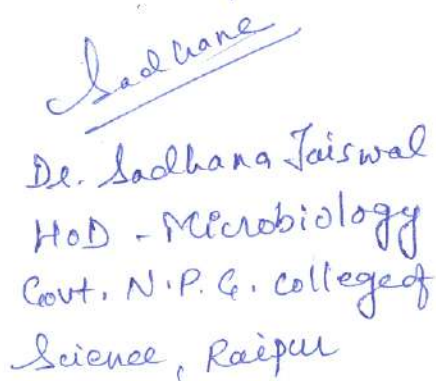 Sadhana
Dr. Sadhana Jaiswal
HoD - Microbiology
Govt. N.P.G. college of
Science, Raipur